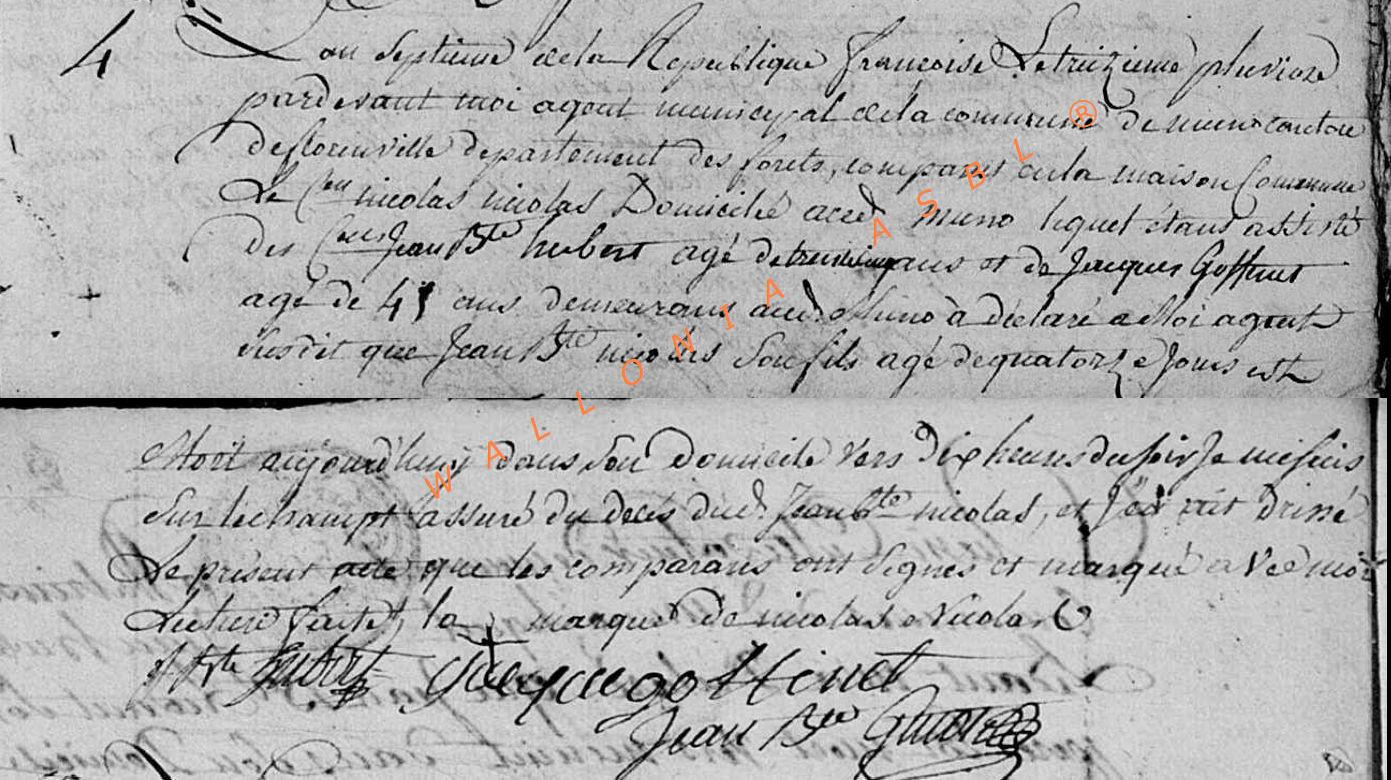 4
Lan Septieme dela Republique francoise Letreizieme pluviose
pardevant moi agent municipal dela commune de muno canton
de florenville departement des forets, comparut enla maison Commune
Le Cen nicolas nicolas Domicilié aud. muno lequel étant assisté
des Cens Jean Bte hubert agé de ans et de Jacques Goffinet
agé de 41 ans demeurans aud. Muno à déclaré a Moi agent
susdit que Jean Bte nicolas Son fils agé de quatorze Jours est
Mort aujourd'huy dans Son Domicile Vers Dix heures du soir Je me suis
Sur lechampt assuré du decès dud. Jean Bte nicolas, et J'en ait dressé
Le présent acte que les comparans ont Signés et marqué avec moi
Lecture faite, la marque de nicolas Nicolas
J Bte hubert Jacque goffinet
Jean Bte
WALLONIA ASBL ®